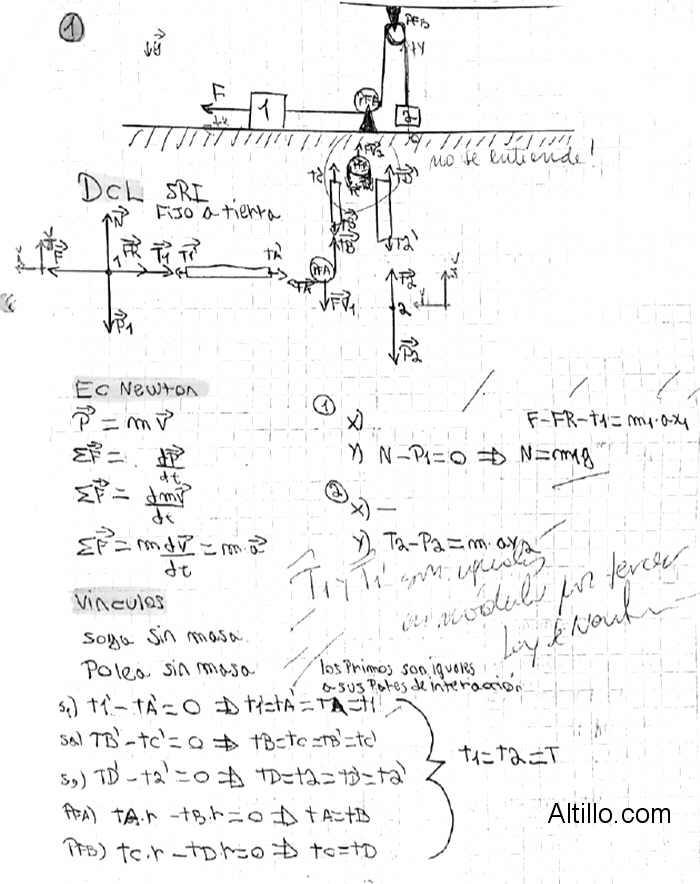 1
PFB
+y
F
1
PFA
2
+x
no se entiende!
DCL SRI
Fijo a tierra
N
F
FR
1
T1
T1'
TA'
TA
PFA
FV1
P1
TB
TB'
TC'
FV2
TD'
T2'
T2
2
P2
Ec Newton
P = m V
ΣF = dP/dt
ΣF = dmV/dt
ΣF = m dV/dt = m.a
1
x) F-FR-T1=m1.ax1
y) N-P1=0 => N=m1g
2
x) —
y) T2-P2=m.ay2
T1 y T1' son iguales
en módulo por tercer
Ley de Newton
Vinculos
soga sin masa
Polea sin masa
los Primos son iguales
a sus Pares de interacción
s1) T1'-TA'=0 => T1=TA'=TA=T1'
s2) TB'-TC'=0 => TB=TC=TB'=TC'
s3) TD'-T2'=0 => TD=T2=TD'=T2'
T1=T2=T
PFA) TA.r -TB.r=0 => TA=TB
PFB) TC.r -TD.r=0 => TC=TD
Altillo.com